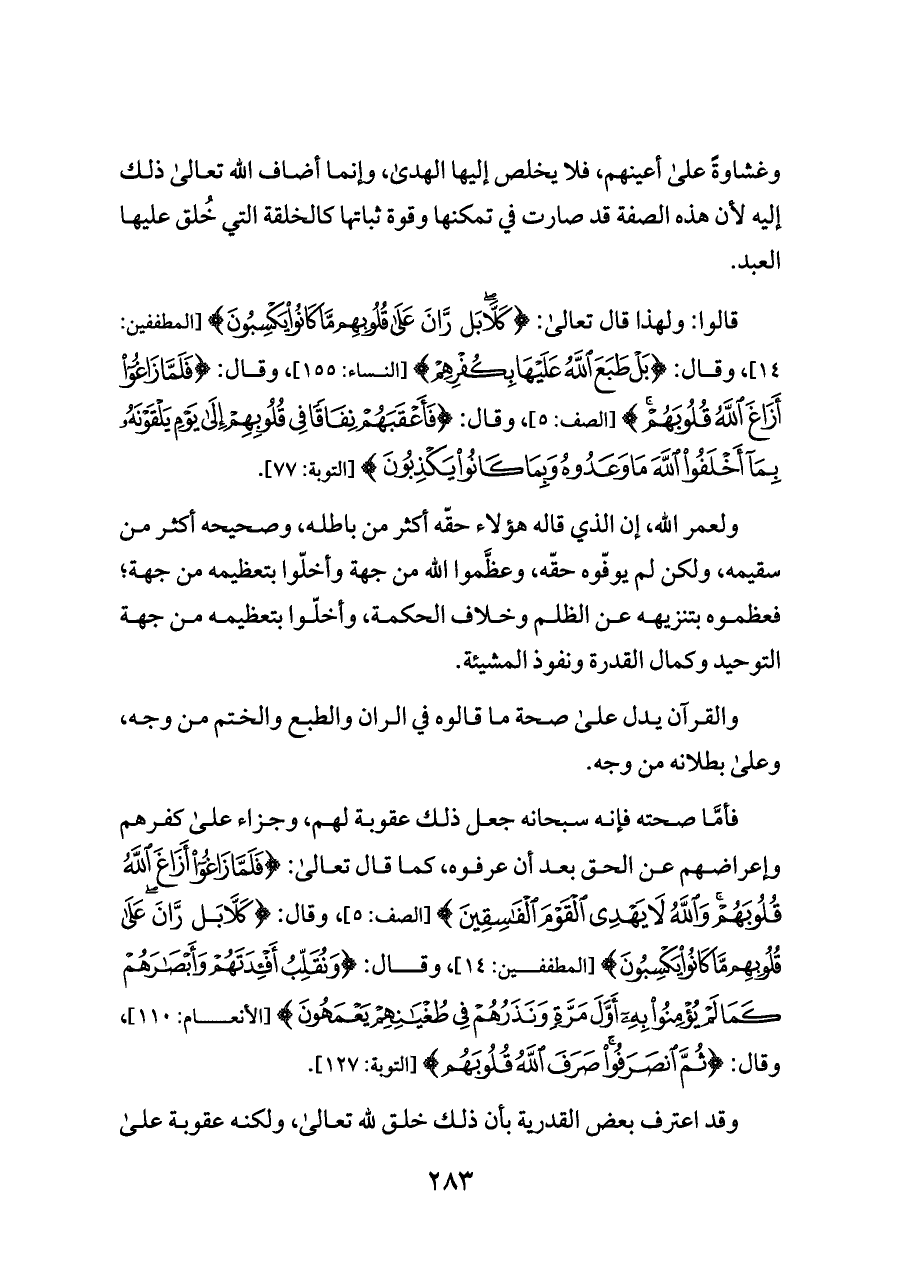 وغشاوةً علىٰ أعينهم، فلا يخلص إليها الهدىٰ، وإنما أضاف الله تعالىٰ ذلك
إليه لأن هذه الصفة قد صارت في تمكنها وقوة ثباتها كالخلقة التي خُلق عليها
العبد.
قالوا: ولهذا قال تعالىٰ: ﴿كَلَّاۖ بَلۡ رَانَ عَلَىٰ قُلُوبِهِم مَّا كَانُواْ يَكۡسِبُونَ﴾ [المطففين:
١٤]، وقال: ﴿بَلۡ طَبَعَ ٱللَّهُ عَلَيۡهَا بِكُفۡرِهِمۡ﴾ [النساء: ١٥٥]، وقال: ﴿فَلَمَّا زَاغُوٓاْ
أَزَاغَ ٱللَّهُ قُلُوبَهُمۡۚ﴾ [الصف: ٥]، وقال: ﴿فَأَعۡقَبَهُمۡ نِفَاقٗا فِي قُلُوبِهِمۡ إِلَىٰ يَوۡمِ يَلۡقَوۡنَهُۥ
بِمَآ أَخۡلَفُواْ ٱللَّهَ مَا وَعَدُوهُ وَبِمَا كَانُواْ يَكۡذِبُونَ﴾ [التوبة: ٧٧].
ولعمر الله، إن الذي قاله هؤلاء حقّه أكثر من باطله، وصحيحه أكثر من
سقيمه، ولكن لم يوفّوه حقّه، وعظَّموا الله من جهة وأخلّوا بتعظيمه من جهة؛
فعظموه بتنزيهه عن الظلم وخلاف الحكمة، وأخلّوا بتعظيمه من جهة
التوحيد وكمال القدرة ونفوذ المشيئة.
والقرآن يدل علىٰ صحة ما قالوه في الران والطبع والختم من وجه،
وعلىٰ بطلانه من وجه.
فأمَّا صحته فإنه سبحانه جعل ذلك عقوبة لهم، وجزاء علىٰ كفرهم
وإعراضهم عن الحق بعد أن عرفوه، كما قال تعالىٰ: ﴿فَلَمَّا زَاغُوٓاْ أَزَاغَ ٱللَّهُ
قُلُوبَهُمۡۚ وَٱللَّهُ لَا يَهۡدِي ٱلۡقَوۡمَ ٱلۡفَٰسِقِينَ﴾ [الصف: ٥]، وقال: ﴿كَلَّاۖ بَلۡ رَانَ عَلَىٰ
قُلُوبِهِم مَّا كَانُواْ يَكۡسِبُونَ﴾ [المطففين: ١٤]، وقال: ﴿وَنُقَلِّبُ أَفۡـِٔدَتَهُمۡ وَأَبۡصَٰرَهُمۡ
كَمَا لَمۡ يُؤۡمِنُواْ بِهِۦٓ أَوَّلَ مَرَّةٖ وَنَذَرُهُمۡ فِي طُغۡيَٰنِهِمۡ يَعۡمَهُونَ﴾ [الأنعام: ١١٠]،
وقال: ﴿ثُمَّ ٱنصَرَفُواْۚ صَرَفَ ٱللَّهُ قُلُوبَهُم﴾ [التوبة: ١٢٧].
وقد اعترف بعض القدرية بأن ذلك خلق لله تعالىٰ، ولكنه عقوبة علىٰ
٢٨٣